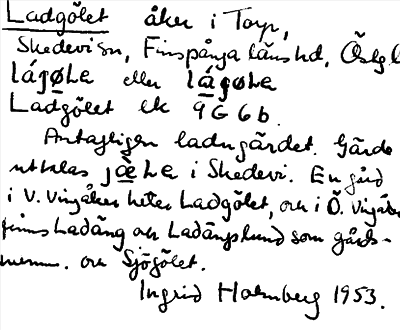 Ladgölet åker i Torp,
Skedevi sn, Finspånga läns hd, Östg
lágøLe eller lágøLe
Ladgölet ek 9 G 6 b
Antagligen ladugärdet. Gärde
uttalas jæ̀Le i Skedevi. En gård
i V. Vingåker heter Ladgölet, och i Ö. Vingåker
finns Ladäng och Ladängslund som gårds-
namn. och Sjögölet.
Ingrid Holmberg 1953.